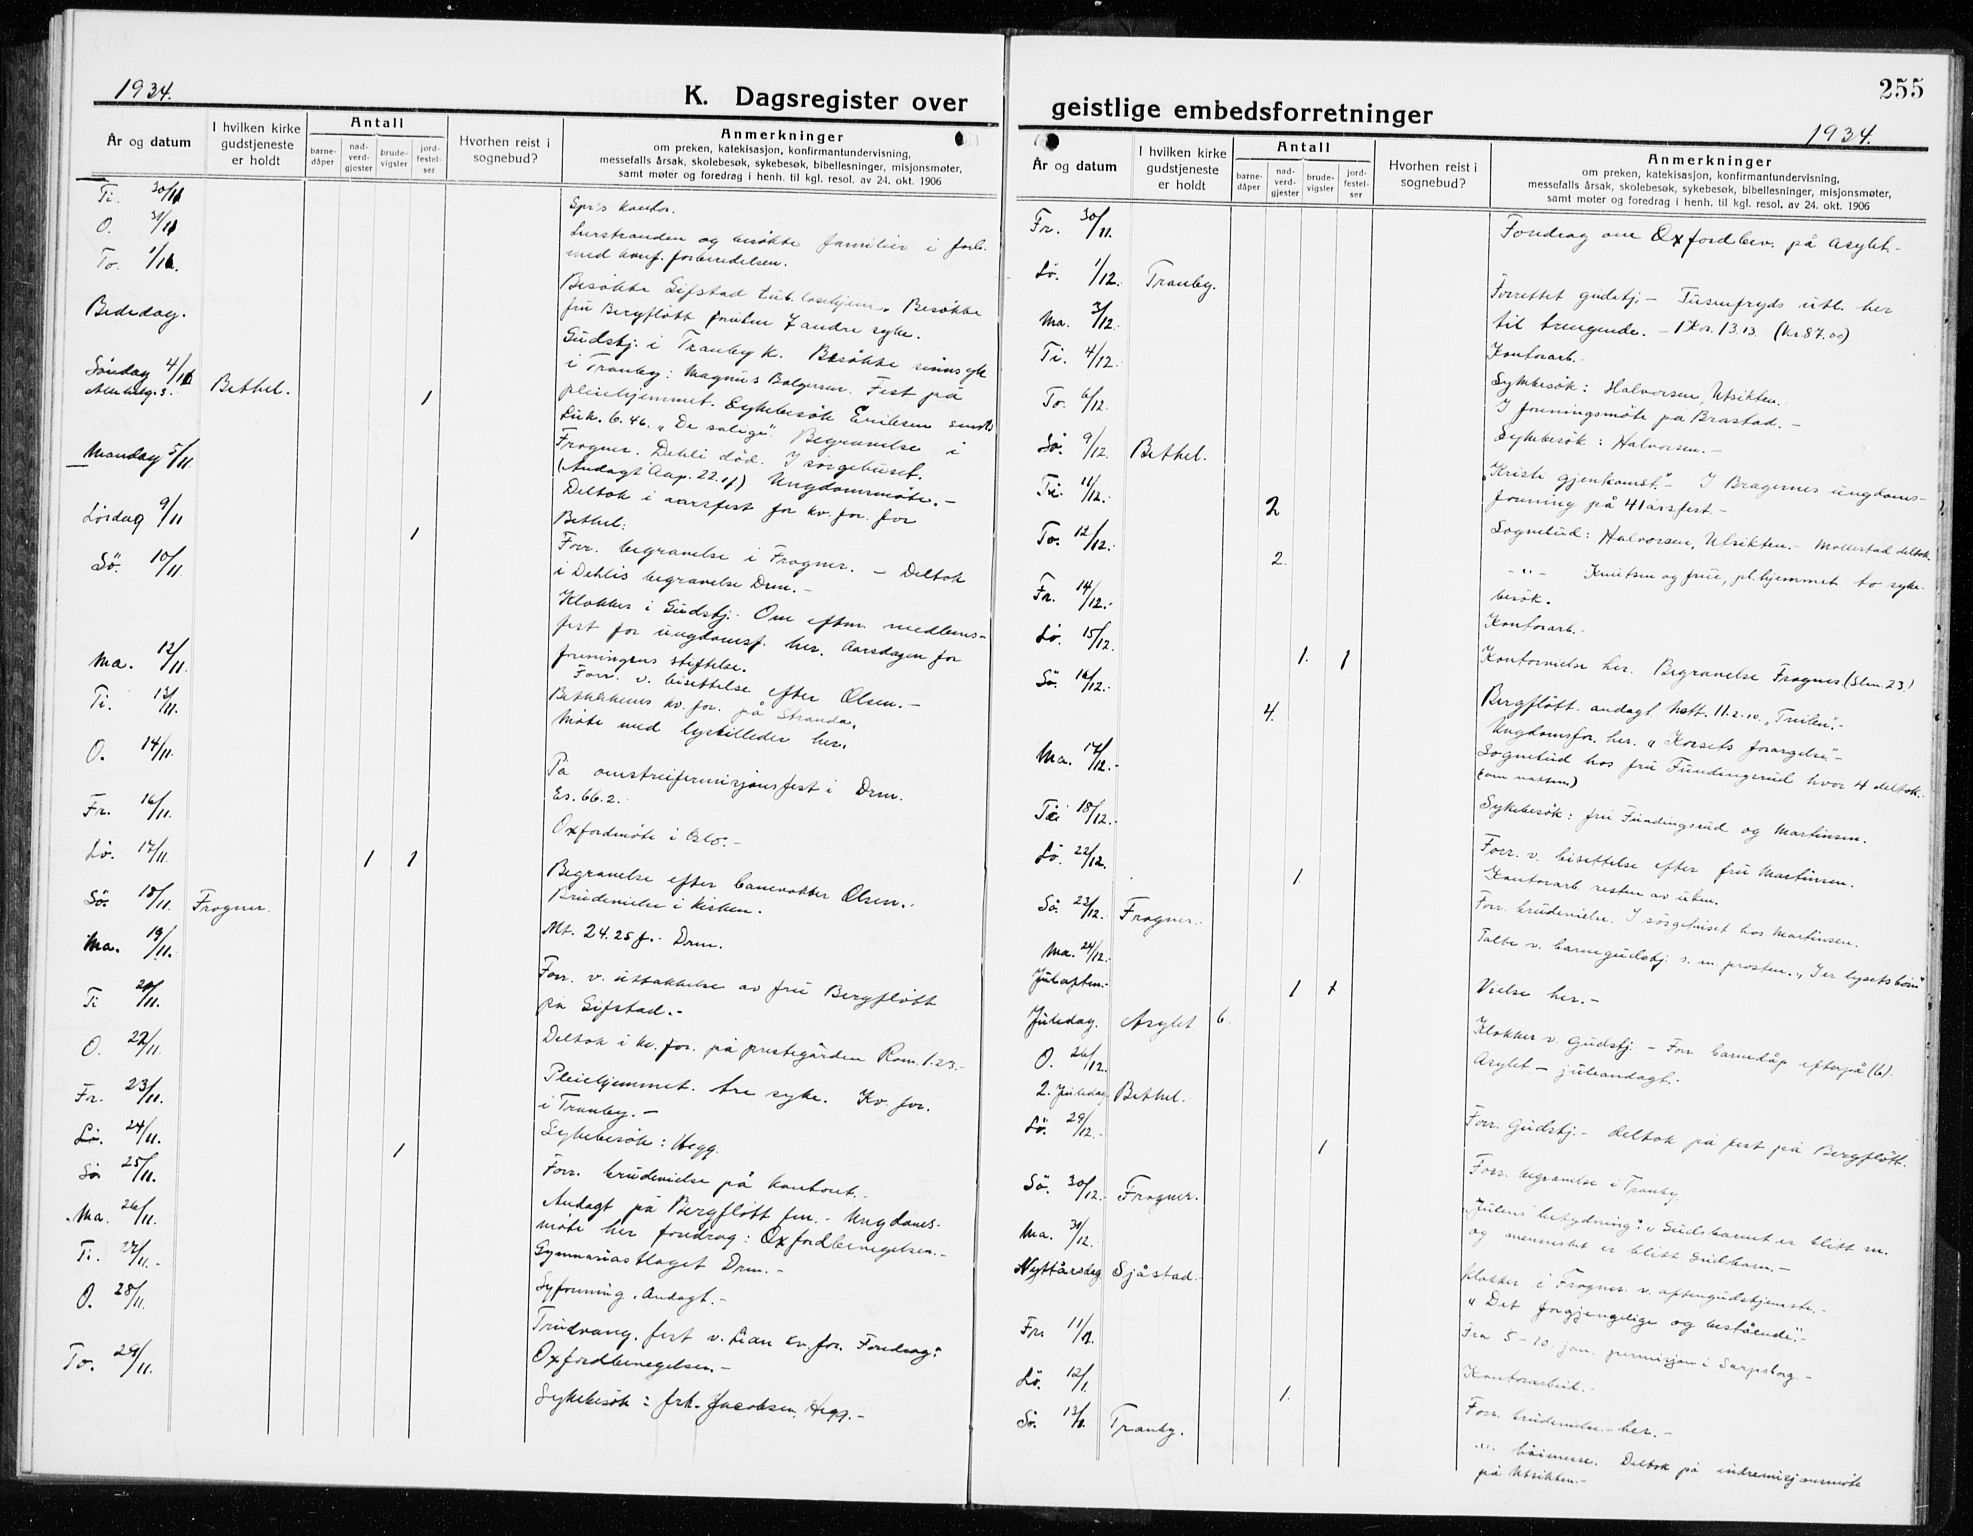 1934.
K. Dagsregister over
År og datum
I hvilken kirke
gudstjeneste
er holdt
Antall
barne-
dåper
nad-
verd-
gjester
brude-
vigsler
jord-
festel-
ser
Hvorhen reist i
sognebud?
Anmerkninger
om preken, katekisasjon, konfirmantundervisning,
messefalls årsak, skolebesøk, sykebesøk, bibellesninger, misjonsmøter,
samt møter og foredrag i henh. til kgl. resol. av 24. okt. 1906
Ti. 30/11
Spr's kontor.
O. 31/11
Lierstranden og besøkte familier i forb.
To. 1/11.
med konf. forberedelsen.
Besøkte Gifstad tub. Besøkte
Bededag.
fru Bergfløtt foruten 7 andre syke.
Gudstj. i Tranby K. Besøkte sinnsyk
Søndag 4/11
i Tranby: Magnus Bolgersen. Fest på
Bethel. 1
pleiehjemmet. Sykebesøk Eriksen
Luk. 6. 46. "De salige". Begravelse i
Mandag 5/11
Frogner. Dehli død. I sørgehuset.
(Andagt Aap. 22.17) Ungdomsmøte. -
Deltok i aarsfest for kv. for. for
Lørdag 9/11 1
Bethel.
Forr. begravelse i Frogner. - Deltok
Sö. 10/11
i Dehlis begravelse Drm. -
Klokker i Gudstj. Om eftm. medlems-
fest for ungdomsf. her. Aarsdagen for
foreningens stiftelse.
Ma. 12/11.
Forr. v. bisettelse efter Olsen. -
Ti. 13/11.
kv. for. på Stranda.
Møte med lysbilleder her.
O. 14/11.
På omstreifermisjonsfest i Drm.
Fr. 16/11.
Es. 66. 2.
Oxfordmøte i Oslo. -
Lö. 17/11. 1 1
Begravelse efter banevokter Olsen.
Brudevielse i kirken.
Sö. 18/11. Frogner.
Mt. 24. 25 f. - Drm.
Ma. 19/11.
Forr. v. uttakkelse av fru Bergfløtt
Ti 20/11.
på Gifstad. -
Deltok i kv. for. på prestegården Rom. 1. 23. -
O. 22/11.
Pleiehjemmet. tre syke. Kv. for.
Fr. 23/11.
i Tranby. -
Sykebesøk: Hegg.
Lö. 24/11. 1
Forr. brudevielse på kontoret. -
Sö. 25/11.
Andagt på Bergfløtt fm. - Ungdoms-
Ma. 26/11.
møte her foredrag: Oxfordbevegelsen. -
Ti. 27/11. -
Gymnasiastlaget Drm. -
O. 28/11.
Syforening. Andagt. -
Trudvang. fest v. Lian kv. for. Foredrag:
Oxfordbevegelsen. -
To. 29/11.
Sykebesøk: frk. Jacobsen, Hegg. -
255
geistlige embedsforretninger
1934.
År og datum
I hvilken kirke
gudstjeneste
er holdt
Antall
barne-
dåper
nad-
verd-
gjester
brude-
vigsler
jord-
festel-
ser
Hvorhen reist i
sognebud?
Anmerkninger
om preken, katekisasjon, konfirmantundervisning,
messefalls årsak, skolebesøk, sykebesøk, bibellesninger, misjonsmøter,
samt møter og foredrag i henh. til kgl. resol. av 24. okt. 1906
Fr. 30/11.
Foredrag om Oxfordbev. på Asylet. -
Lö. 1/12. Tranby.
Forrettet gudstj. - Tusenfryds utl. her
Ma. 3/12.
til trengende. - 1 Kor. 13. 13. (kr 87.00)
Ti. 4/12.
Kontorarb. -
To. 6/12.
Sykebesøk: Halvorsen, Utsikten.
I foreningsmøte på Brastad. -
Sö. 9/12. Bethel.
Sykebesøk: Halvorsen. -
Ti. 11/12. 2
"Kristi gjenkomst". - I Bragernes ungdoms-
forening på 41 årsfest. -
To. 12/12. 2.
Sognebud: Halvorsen, Utsikten. - Mollestad deltok.
- " - Knutsen og frue, pl. hjemmet to syke-
Fr. 14/12. -
besøk.
Kontorarb. -
Lö. 15/12. 1. 1
Kontorvielse her. Begravelse Frogner (Slm. 23.)
Sö. 16/12. 4.
Bergfløtt. andagt Matt. 11. 2-10. "Tvilen". -
Ungdomsfor. her. "Korsets forargelse" -
Ma. 17/12. -
Sognebud hos fru Fundingsrud hvor 4 deltok.
(om natten)
Ti 18/12. -
Sykebesøk: fru Fundingsrud og Martinsen.
Lö. 22/12. 1
Forr. v. bisettelse efter fru Martinsen.
Kontorarb. resten av uken.
Sö. 23/12. Frogner.
Forr. brudevielse. I sørgehuset hos Martinsen.
Ma. 24/12.
Talte v. barnegudstj. s. m. prosten. "I er lysets børn"
Juleaften. 1 1
Vielse her. -
Juledag. Asylet 6.
Klokker v. Gudstj. - Forr. barnedåp efterpå (6).
O. 26/12.
Asylet - juleandagt. -
2. Juledag Bethel.
Lö. 29/12. - 1
Forr. Gudstj. - deltok på fest på Bergfløtt.
Forr. begravelse i Tranby.
Sö. 30/12. - Frogner.
"Julens betydning": "Gudsbarnet er blitt m.
Ma. 31/12.
og mennesket er blitt Gudsbarn. -
Nyttårsdag Sjåstad. -
Klokker i Frogner v. aftengudstjeneste. -
"Det forgjengelige og bestående". -
Fr. 11/1.
Fra 5 - 10. jan. permisjon i Sarpsborg. -
Lö. 12/1. 1.
Kontorarbeid. -
Sö. 13/1. Tranby.
Forr. brudevielse - her. -
" Deltok på indremisjonsmøte
på Utsikten. -